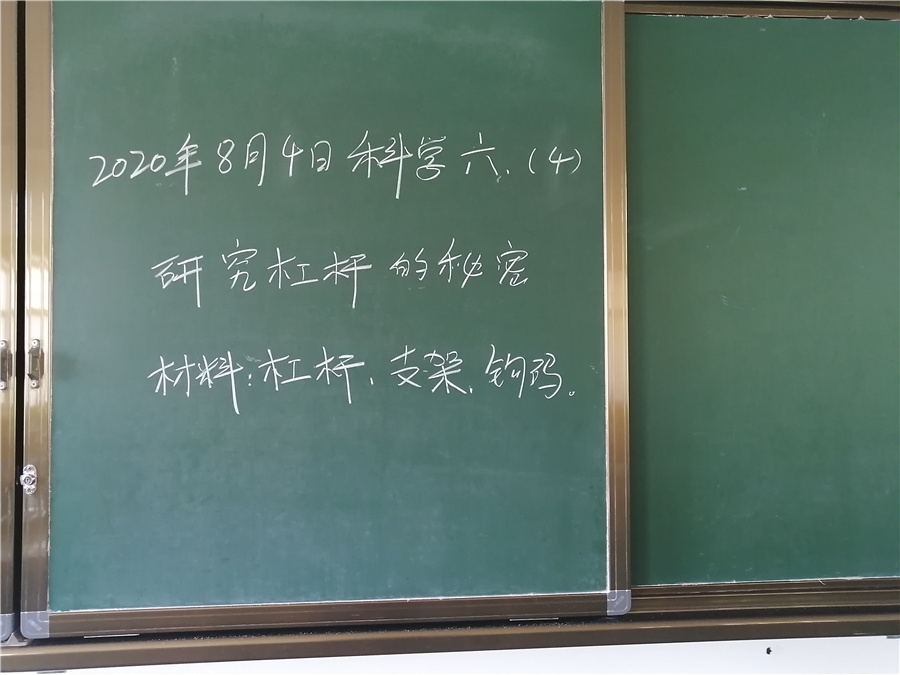 2020年8月4日科学六、(4)
研究杠杆的秘密
材料:杠杆、支架、钩码。